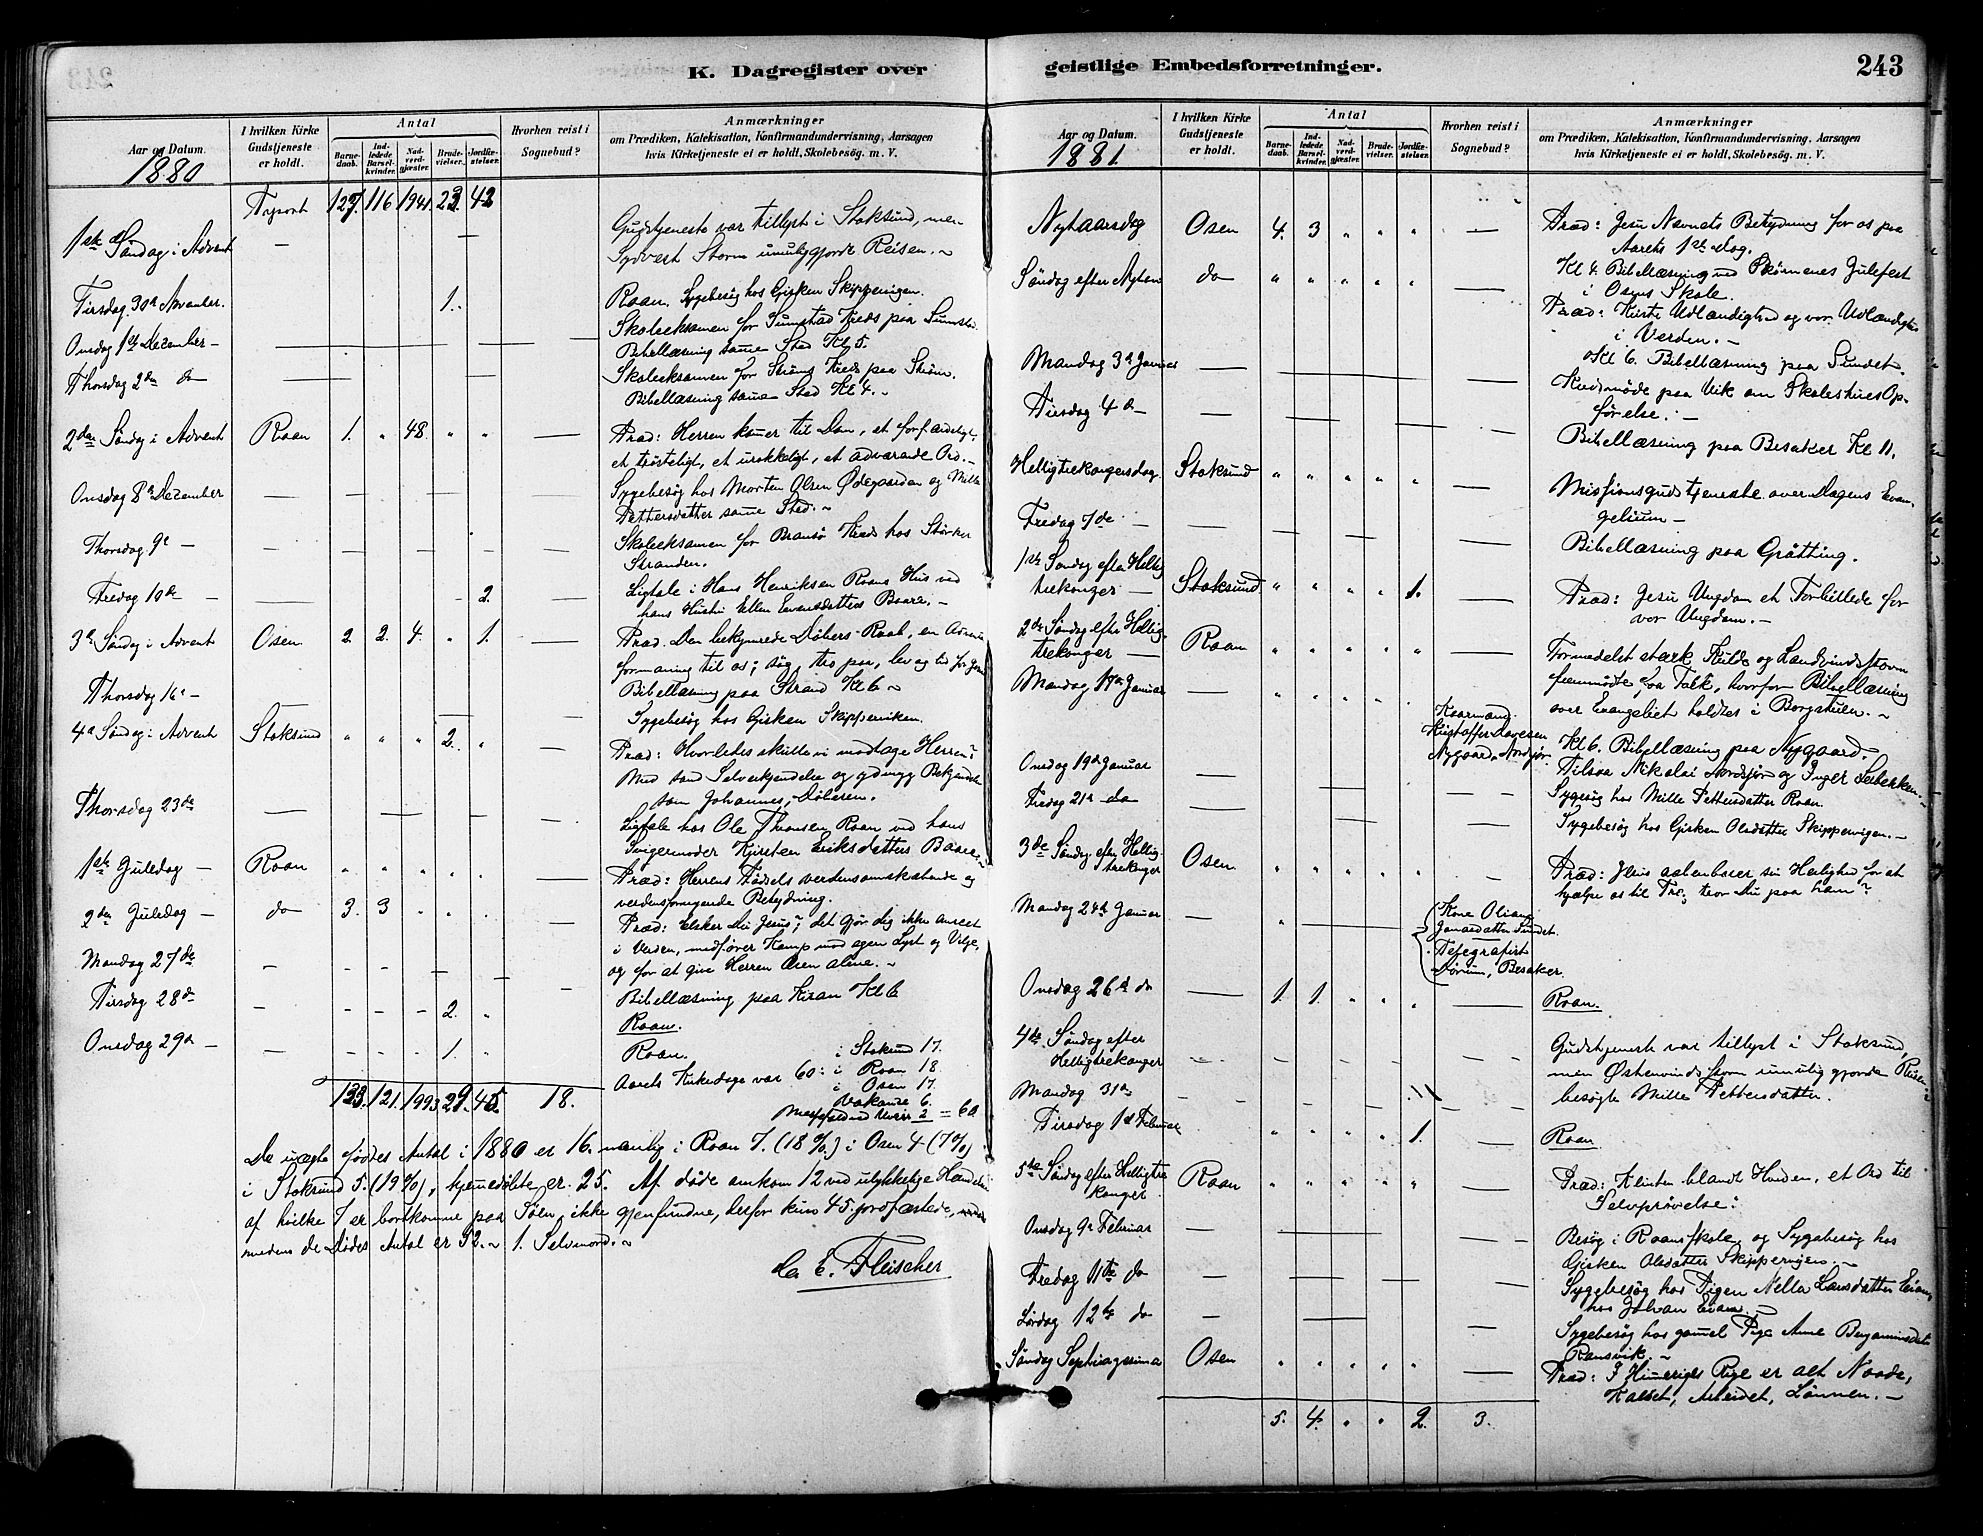 243
K. Dagregister over
geistlige Embedsforretninger.
Aar og Datum.
1880
I hvilken Kirke
Gudstjeneste
er holdt.
Antal
Barne-
daab.
Ind-
ledede
Barsel-
kvinder.
Nad-
verd-
gjæster.
Brude-
vielser.
Jordfæ-
stelser.
Hvorhen reist i
Sognebud?
Anmærkninger
om Prædiken, Katekisation, Konfirmandundervisning, Aarsagen
hvis Kirketjeneste ei er holdt, Skolebesög. m. V.
127. 116 1941. 23. 42
1ste Søndag i Advent — Gudstjeneste var tillyst i Stoksund, men
Sydvest Storm umuliggjorde Reisen. ~
Tirsdag 30te November. 1. Roan. Sygebesøg hos Gjerken Skipperigen.
Onsdag 1ste Dezember — Skoleeksamen for Sumstad Kreds paa Sumstad
Bibellæsning samme Sted Kl 5.
Thorsdag 2den do — Skoleeksamen for Strøms Kreds paa Strøm.
Bibellæsning samme Sted Kl 4. ~
2den Søndag i Advent Roan 1. " 48. " " — Præd: Herren komer til Dom, et forfærdeligt,
et trøsteligt, et urokkeligt, et advarende Ord. —
Onsdag 8de Dezember — Sygebesøg hos Morten Olsen Ødegaarden og Mille
Pettersdatter samme Sted. ~
Thorsdag 9de — Skoleeksamen for Bransø Kreds hos Størker
Stranden.
Fredag 10de — 2. — Ligtale i Hans Henriksen Roans Hus ved
hans Hustru Ellen Evensdatters Baare. —
3de Søndag i Advent Osen 2. 2. 4. " 1. — Præd. Den bekymrede Døbers Raab, en Advents
formaning til os; søg, tro paa, lev og lid for Jesus
Thorsdag 16de — Bibellæsning paa Strand Kl 6 ~
Sygebesøg hos Gjerken Skipperviken.
4de Søndag i Advent Stoksund " " " 2. " — Præd: Hvorledes skulle vi modtage Herren?
Med sand Selverkjendelse og ydmyg Bekjendelse
som Johannes, Døberen.
Thorsdag 23de — Ligtale hos Ole Thomsen Roan ved hans
Svigermoder Kirsten Eriksdatters Baare. ~
1ste Juledag — Roan " " " " " — Præd: Herrens Fødsels verdensomskabende og
verdensfornyende Betydning.
2den Juledag — do 3. 3 " " " — Præd: Elsker du Jesus? det gjør dig ikke anseet
i Verden, medfører Kamp mod egen Lyst og Vilje,
og for at give Herren Æren alene. ~
Mandag 27de — Bibellæsning paa Kiran Kl 6
Tirsdag 28de — 2. " Roan.
Onsdag 29de — 1. " Roan.
Aarets Kirkedage var 60: i Stoksund 17.
i Roan 18
i Osen 17.
Vakante 6.
= 60
133. 121. 1993. 29. 45. 18.
De uægte fødtes Antal i 1880 er 16. nemlig i Roan 7. (18 %) i Osen 4 (7%)
i Stoksund 5. (19 %), hjemmedøbte er 25. Af døde omkom 12 ved ulykkelige Hændelser
af hvilke 7 er bortkomne paa Søen, ikke gjenfundne, derfor kun 45 jordfæstede,
medens de Dødes Antal er 52. ~ 1. Selvmord. ~
E. Fleischer
Aar og Datum.
1881
I hvilken Kirke
Gudstjeneste
er holdt.
Antal
Barne-
daab.
Ind-
ledede
Barsel-
kvinder.
Nad-
verd-
gjæster.
Brude-
vielser.
Jordfæ-
stelser.
Hvorhen reist i
Sognebud?
Anmærkninger
om Prædiken, Katekisation, Konfirmandundervisning, Aarsagen
hvis Kirketjeneste ei er holdt, Skolebesög. m. V.
Nytaarsdag Osen 4. 3 " " " — Præd: Jesu Navnets Betydning for os paa
Aarets 1ste Dag.
Kl 4. Bibellæsning ved Børnenes Julefest
i Osens Skole.
Søndag efter Nytaar do " " " " " — Præd: Kristi Udlændighed og vor Udlændighed
i Verden. —
Mandag 3de Januar — Kl 6. Bibellæsning paa Sundet.
Tirsdag 4de — Kredsmøde paa Vik om Skolehuses Op-
førelse. —
Bibellæsning paa Besaker Kl 11.
Helligtrekongersdag. Stoksund " " " " " — Missionsgudstjeneste over Dagens Evan-
gelium —
Fredag 7de — Bibellæsning paa Grøtting.
1ste Søndag efter Hellig
trekonger — Stoksund " " " " 1. — Præd: Jesu Ungdom et Forbillede for
vor Ungdom. —
2den Søndag efter Hellig-
trekonger — Roan " " " " " — Formedelst stærk Kulde og Landvindsstorm
fremmødte faa Folk, hvorfor Bibellæsning
over Evangeliet holdtes i Borgstuen. ~
Mandag 17de Januar — Kaarmand
Kristoffer Larsen
Nygaard, Nordsjør. Kl 6. Bibellæsning paa Nygaard.
Tilsaa Mikolai Nordsjør og Inger Lerbækken. ~
Onsdag 19de Januar — Sygesøg hos Mille Pettersdatter Roan
Fredag 21de do — Sygebesøg hos Gjerken Olsdatter Skippervigen. —
3de Søndag efter Hellig-
trekonger Osen " " " " " — Præd: Jesus aabenbarer sin Herlighed for at
hjælpe os til Tro; tror du paa ham?
Mandag 24de Januar — Kone Oliana
Jonasdatter Sundet.
Telegrafist
Dørum, Besaker.
Onsdag 26de do — 1. 1. " " " — Roan.
4de Søndag efter
Helligtrekonger — Gudstjeneste var tillyst i Stoksund,
men Østenvindsstorm umuliggjorde Reisen
Mandag 31te — besøgte Mille Pettersdatter.
Tirsdag 1ste Februar " " " " 1. — Roan.
5te Søndag efter Helligtre
konger Roan " " " " " — Præd: Klinten blandt Hveden, et Ord til
Selvprøvelse.
Onsdag 9de Februar — Besøg i Roans Skole og Sygebesøg hos
Gjerken Olsdatter Skippervigen. ~
Fredag 11te do — Sygebesøg hos Pigen Nella Larsdatter
hos Johan
Lørdag 12te do — Sygebesøg hos gammel Pige Anne Benjaminsdatter
Ransvik. ~
Søndag Septuagesima Osen " " " " " — Præd: I Himmeriges Rige er alt Naade,
Kaldet, Arbeidet, Lønnen. —
5. 4. " " 2. 3.